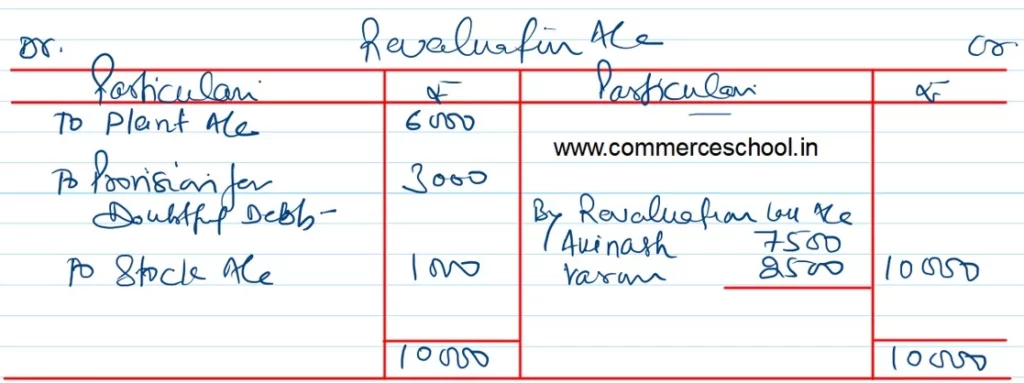 Dr. Revaluation A/c Cr
Particulars ₹ Particulars ₹
To Plant A/c 6000
www.commerceschool.in
To Provision for 3000
Doubtful Debts-
By Revaluation loss A/c
Avinash 7500
To Stock A/c 1000 Varun 2500 10000
10000 10000